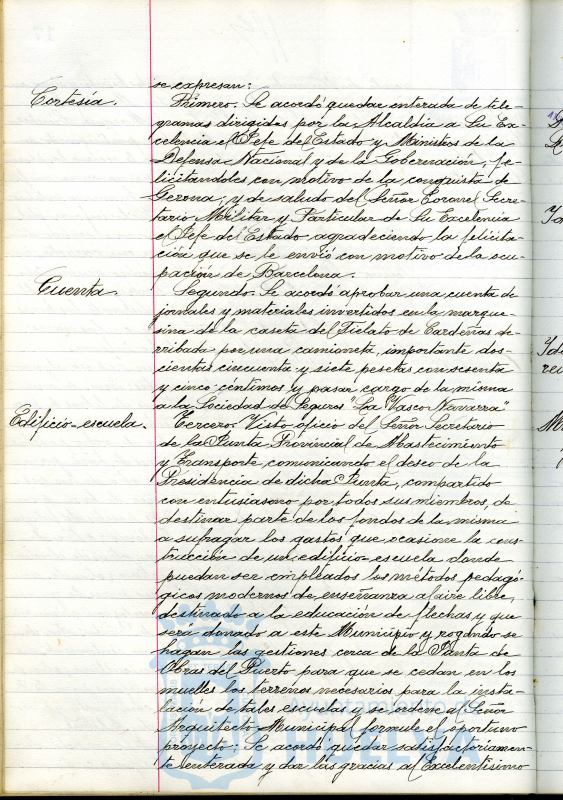 se expresan:
Cortesía.
Primero. Se acordó quedar enterada de tele-
gramas dirigidos por la Alcaldía a Su Ex-
celencia el Jefe del Estado y Ministros de la
Defensa Nacional y de la Gobernación, fe-
licitandoles con motivo de la conquista de
Gerona; y de saludo del Señor Coronel Secre-
tario Militar y Particular de Su Excelencia
el Jefe del Estado agradeciendo la felicita-
ción que se le envió con motivo de la ocu-
pación de Barcelona.
Cuenta.
Segundo. Se acordó aprobar una cuenta de
jornales y materiales invertidos en la marque-
sina de la caseta del Fielato de Cardeñas de-
rribada por una camioneta, importante dos-
cientas cincuenta y siete pesetas con sesenta
y cinco céntimos y pasar cargo de la misma
a la Sociedad de Seguros "La Vasco Navarra"
Edificio-escuela.
Tercero. Visto oficio del Señor Secretario
de la Junta Provincial de Abastecimiento
y Transporte comunicando el deseo de la
Presidencia de dicha Junta, compartido
con entusiasmo por todos sus miembros, de
destinar parte de los fondos de la misma
a sufragar los gastos que ocasione la cons-
trucción de un edificio-escuela donde
puedan ser empleados los métodos pedagó-
gicos modernos de enseñanza al aire libre,
destinado a la educación de flechas y que
será donado a este Municipio y rogando se
hagan las gestiones cerca de la Junta de
Obras del Puerto para que se cedan en los
muelles los terrenos necesarios para la insta-
lación de tales escuelas y se ordene al Señor
Arquitecto Municipal formule el oportuno
proyecto; Se acordó quedar satisfactoriamen-
te enterada y dar las gracias al Excelentísimo